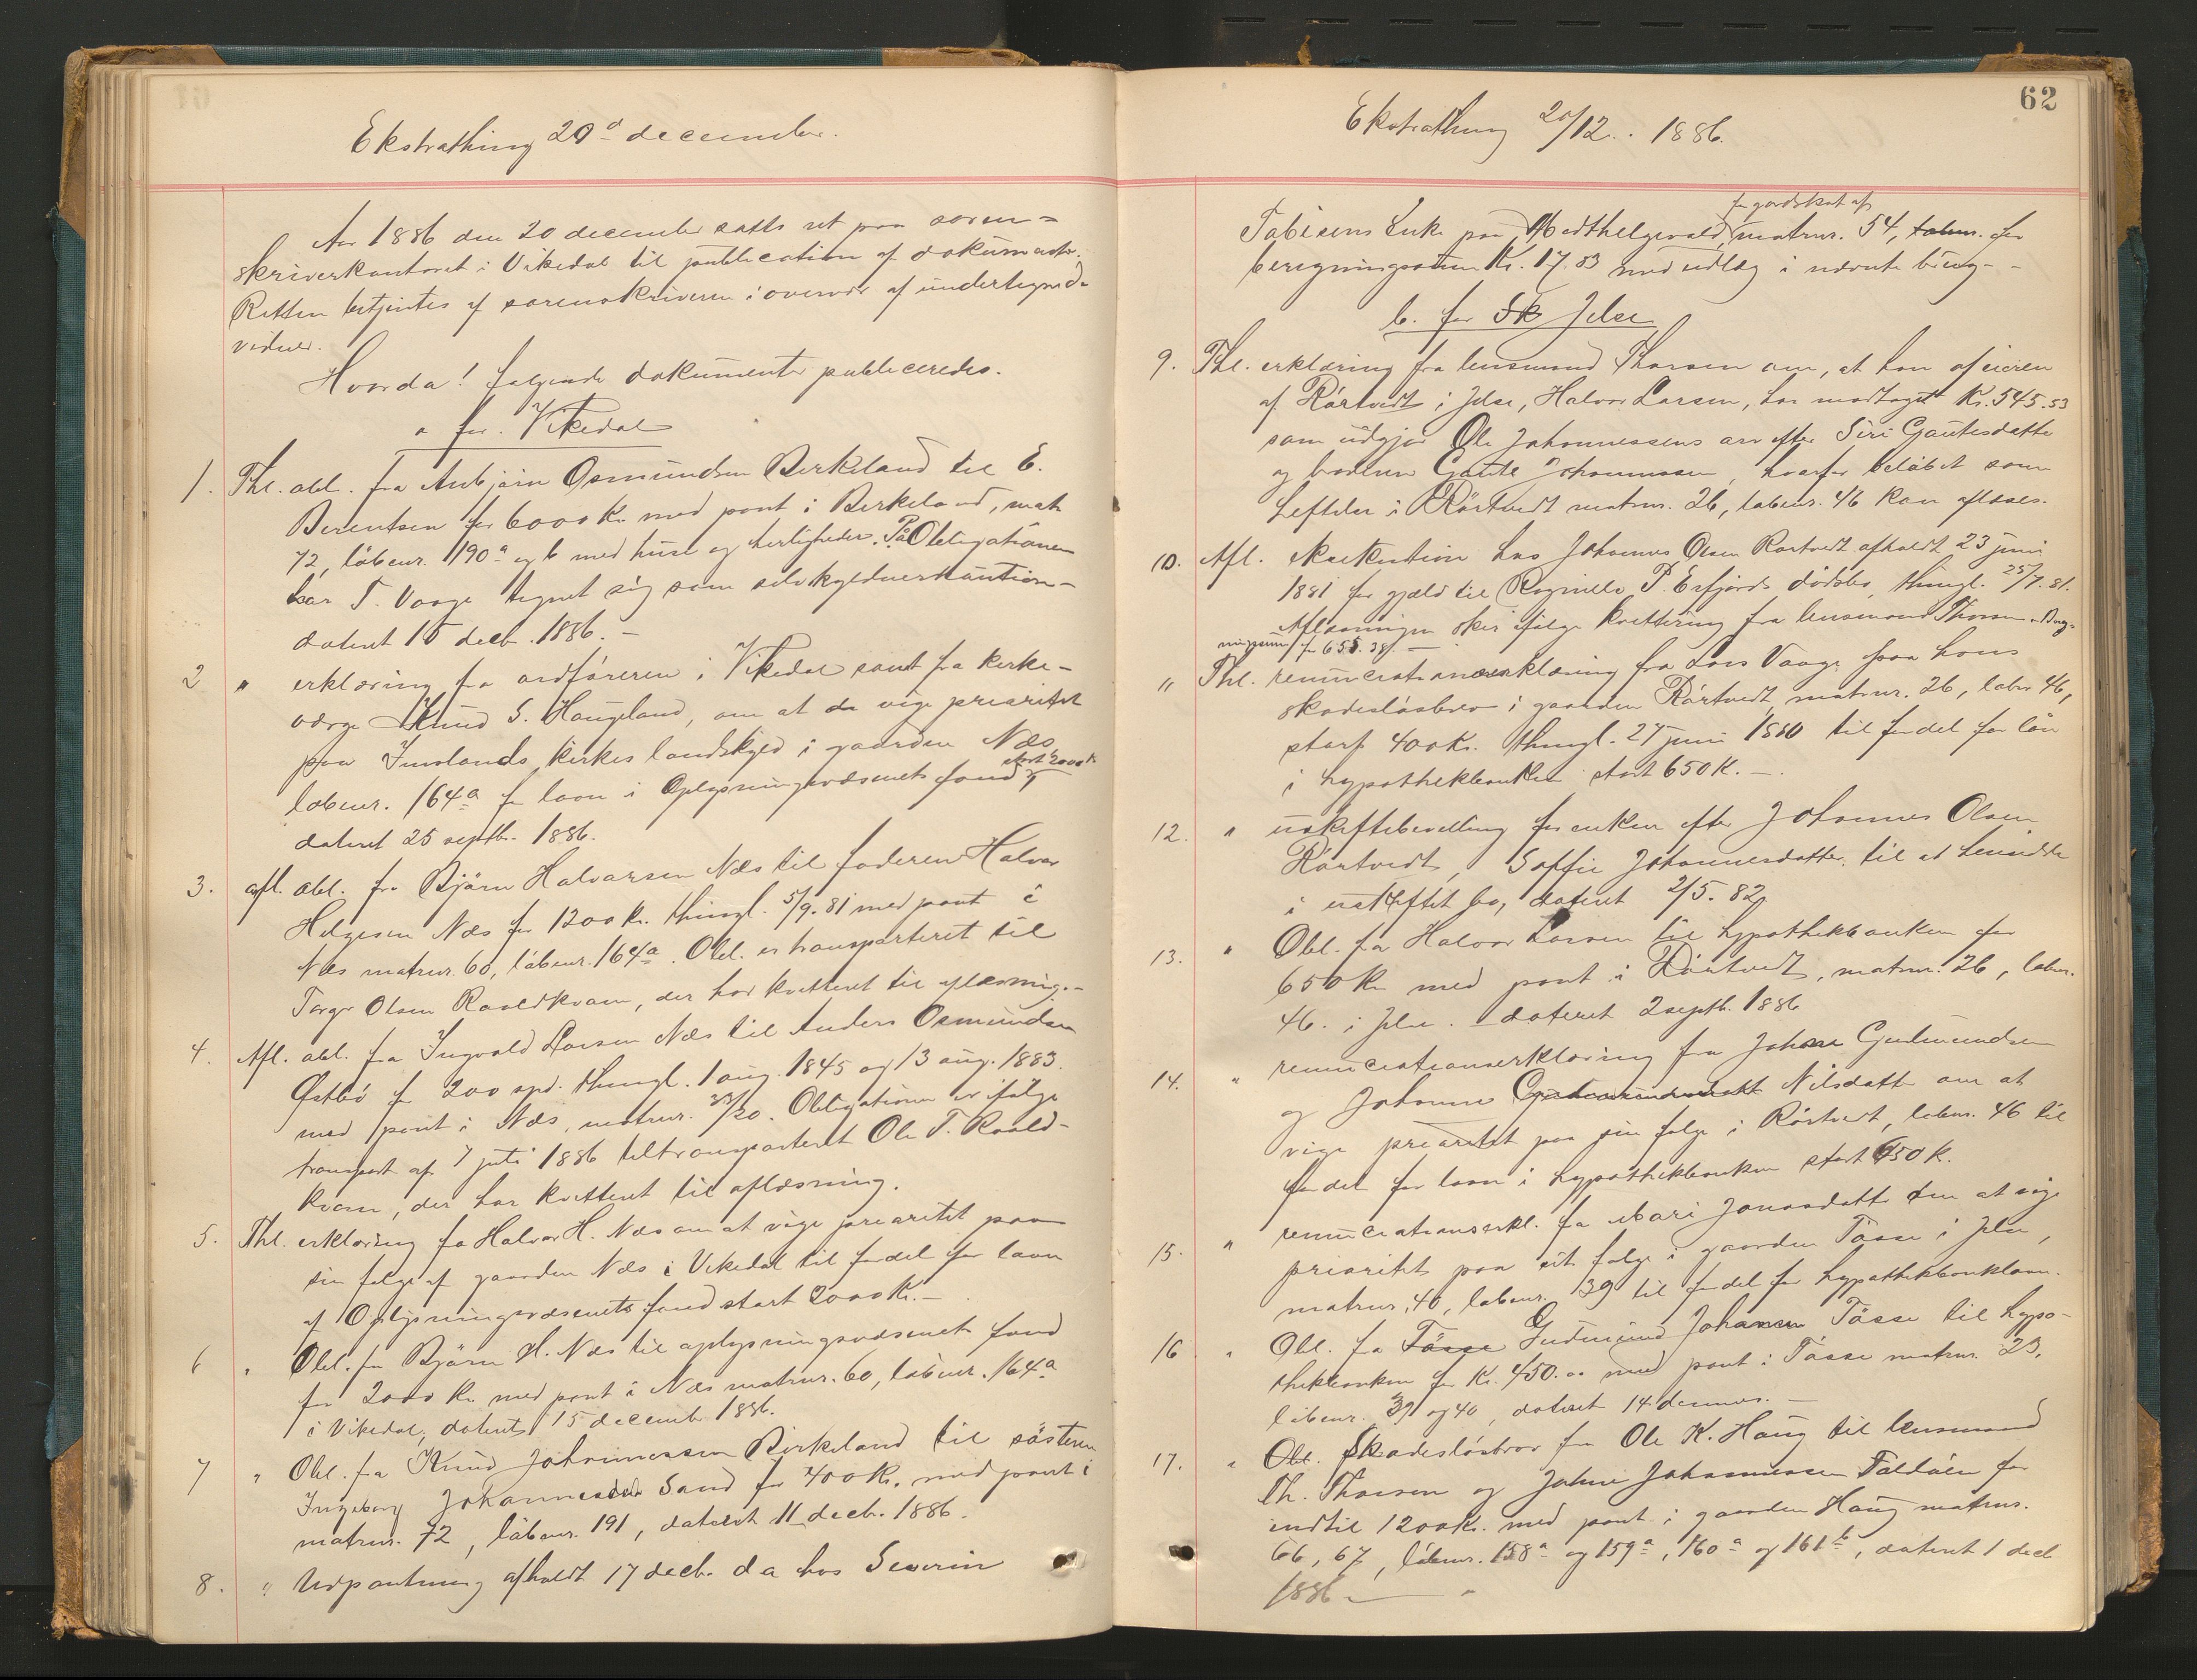 Ekstrathing 20d december.
Aar 1886 den 20 december sattes ret paa soren=
skriverkontoret i Vikedal til publication af dokumenter.
Retten betjentes af sorenskriveren i overvær af undertegnede
vidner.
Hvorda! følgende dokumenter publiceredes.
a for Vikedal
1. Thl. obl. fra Anbjørn Osmundsen Birkeland til E.
Berentsen for 6000 Kr. med pant i Birkeland, matr
72, løbenr. 190a og b med huse og herligheder. På Obligationen
har T. Vaage tegnet sig som selvskyldnerkaution-
dateret 15 decb. 1886. -
2 " erklæring fra ordføreren i Vikedal samt fra kirke-
værge Knud S. Haugeland, om at de vige prioritet
paa Imslands kirkes landskyld i gaarden Næs
løbenr. 164a for laan i Oplysningsvæsenets fond stort 2000 K
dateret 25 septb. 1886.
3. Afl. obl. fra Bjørn Halvorsen Næs til faderen Halvor
Helgesen Næs for 1200 kr. thingl. 5/9.81 med pant i
Næs matrnr. 60, løbenr. 164a. Obl. er transporteret til
Torger Olsen Roaldkvam, der har kvitteret til aflæsning.-
4. Afl. obl. fra Ingvald Larsen Næs til Anders Osmundsen
Østbø for 200 spd. thingl. 1 aug. 1845 og 13 aug. 1883
med pant i Næs, matrnr. Obligationen er ifølge
transport af 7 juli 1886 tiltransporteret Ole T. Roald-
kvam, der har kvitteret til aflæsning.
5. Thl. erklæring fra Halvor H. Næs om at vige prioritet paa
sin følge af gaarden Næs i Vikedal til fordel for laan
af Oplysningsvæsenets fond stort 2000 Kr. -
6 " Obl. fra Bjørn H. Næs til oplysningsvæsenets fond
for 2000 kr. med pant i Næs matrnr. 60, løbenr. 164a
i Vikedal, dateret 15 december 1886.
7 " Obl. fra Knud Johannessen Birkeland til søsteren
Ingeborg Johannesdtr Sand for 400 Kr. med pant i
matrnr. 72, løbenr. 191, dateret 11 decb. 1886.
8. " Udpantning afholdt 17 decb. d a hos Severin
62
Ekstrathing 20/12. 1886.
for jordskat af
Tobiesens Enke paa matrnr. 54, løbenr. for
beregningssum Kr. 17.83 med udlæg i nævnte brug--
b. for Sk Jelse
9. Thl. erklæring fra lensmand Thorsen om, at han af eieren
af Rørtvedt i Jelse, Halvor Larsen, har modtaget Kr. 545.53
som udgjør Ole Johannessens arv efter Siri Gautesdatter
og broderen Gaute Johannessen, hvorfor beløbet som
heftelse i Rørtvedt matrnr. 26, løbenr. 46 kan aflæses.
10. Afl. eksekution hos Johannes Olsen Rørtvedt afholdt 23 juni
1881 for gjæld til Ragnilla P. Erfjords dødsbo, thingl. 25/7.81.
Aflæsningen sker ifølge kvittering fra lensmand Thorsen. Bereg-
ningssum for 655.38. -
" Thl. renunciationserklæring fra Lars Vaage paa hans
skadesløsbrev i gaarden Rørtvedt, matrnr. 26, løbnr 46,
stort 400 Kr. thingl. 27 juni 1880 til fordel for lån
i hypothekbanken stort 650 K. -
12. " uskiftebevilling for enken efter Johannes Olsen
Rørtvedt, Soffie Johannesdatter til at hensidde
i uskiftet bo, dateret 2/5.82
13. " Obl. fra Halvor Larsen til hypothekbanken for
650 Kr med pant i Rørtvedt, matrnr. 26, løbnr.
46. i Jelse. - dateret 2 septb. 1886
14. " renunciationserklæring fra Johne Gudmundsen
og Johanne Gudmundsdatt Nilsdatt om at
vige prioritet paa sin følge i Rørtvedt, løbenr. 46 til
fordel for laan i hypothekbanken stort 650 K.
15. " renunciationserkl. fra Mari Jonasdatter om at vige
prioritet paa sit følge i gaarden Tøsse i Jelse,
matrnr. 40, løbenr. 39 til fordel for hypothekbanklaan.
16 " Obl. fra Tøsse Gudmund Johansen Tøsse til hypo-
thekbanken for Kr. 450.00 med pant i Tøsse matrnr. 23,
løbenr. 39 og 40, dateret 14 dennes. -
17. " Obl. Skadesløsbrev fra Ole K. Haug til lensmand
Th. Thorsen og Johne Johannessen Foldøen for
indtil 1200 Kr. med pant i gaarden Haug matrnr.
66, 67, løbenr. 158a og 159a, 160a og 161b, dateret 1 decb
1886 -